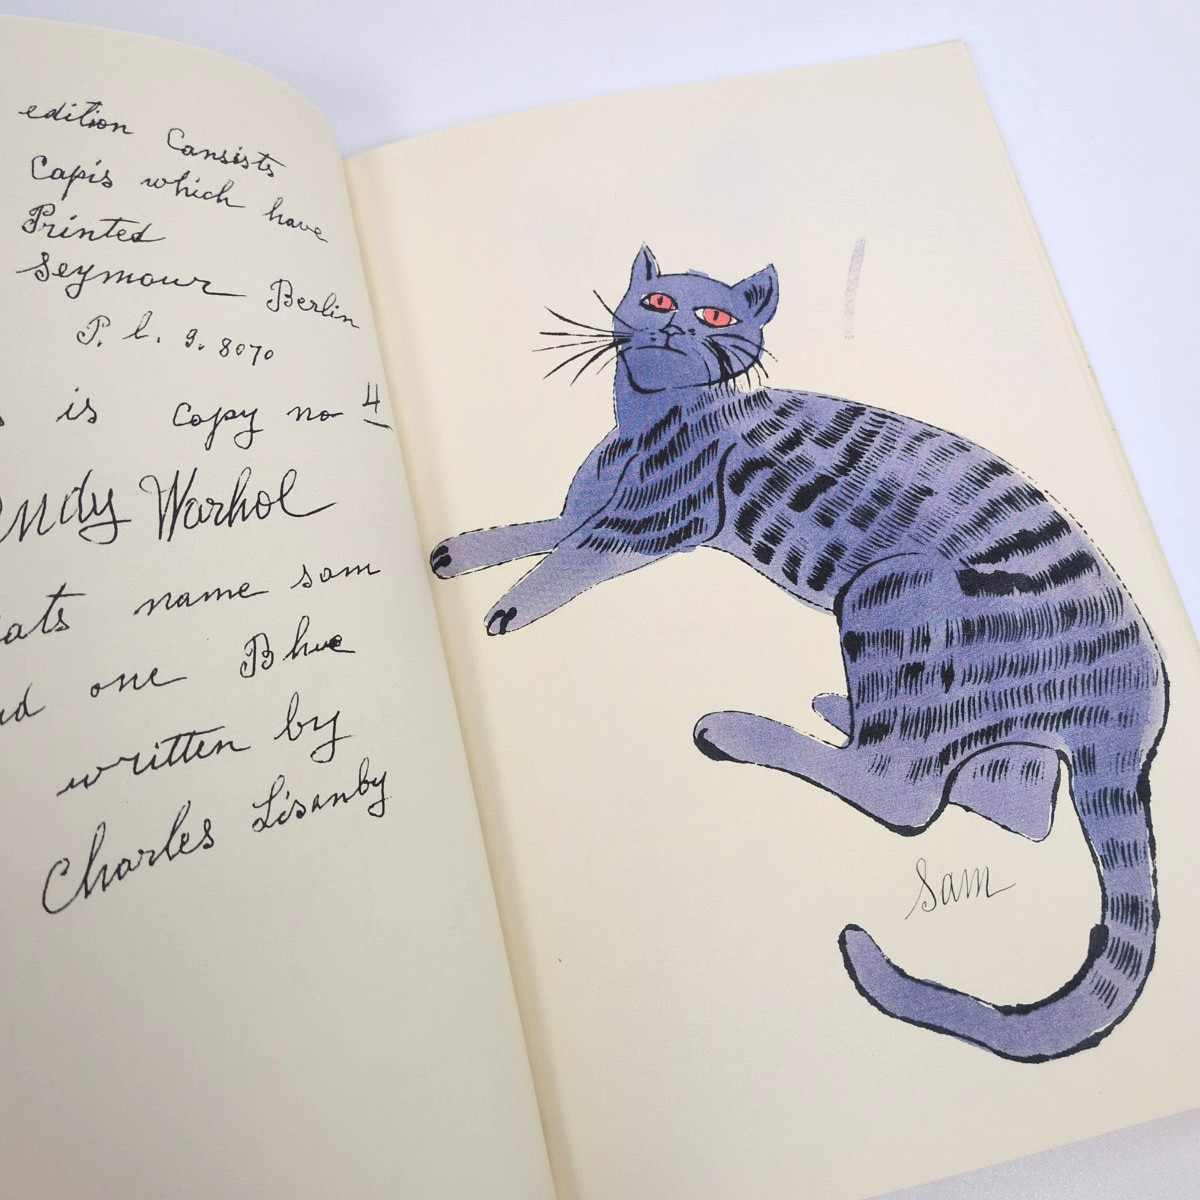 edition Cansists
Capis which have
Printed
Seymour Berlin
P. l. 9. 8070
is copy no 4
Andy Warhol
cats name sam
and one Blue
written by
Charles Lisanby
Sam